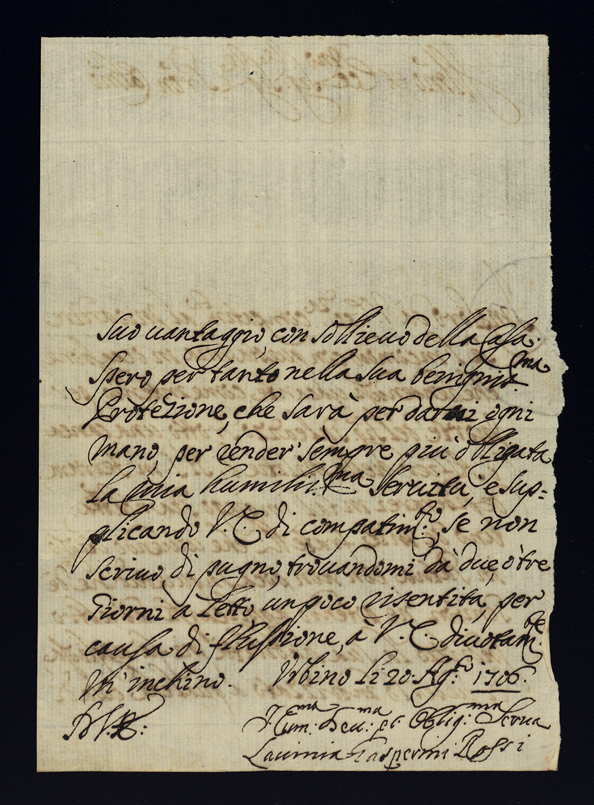 suo uantaggio, con sollieuo della Casa.
Spero per tanto nella sua benignis.ma
Protezione, che sarà per darmi ogni
mano, per render sempre più obligata
la mia humilis.ma seruitù, e sup=
plicando V.E. di compatim.to, se non
scriuo di pugno, trouandomi da due, ò tre
Giorni a Letto un poco risentita, per
causa di flussione, à V.E. diuotam.te
m'inchino. Vrbino Li 20. Ag.to 1706.
Hum.ma Deu.ma et Oblig.ma Serua
Lauinia Gasperini Rossi